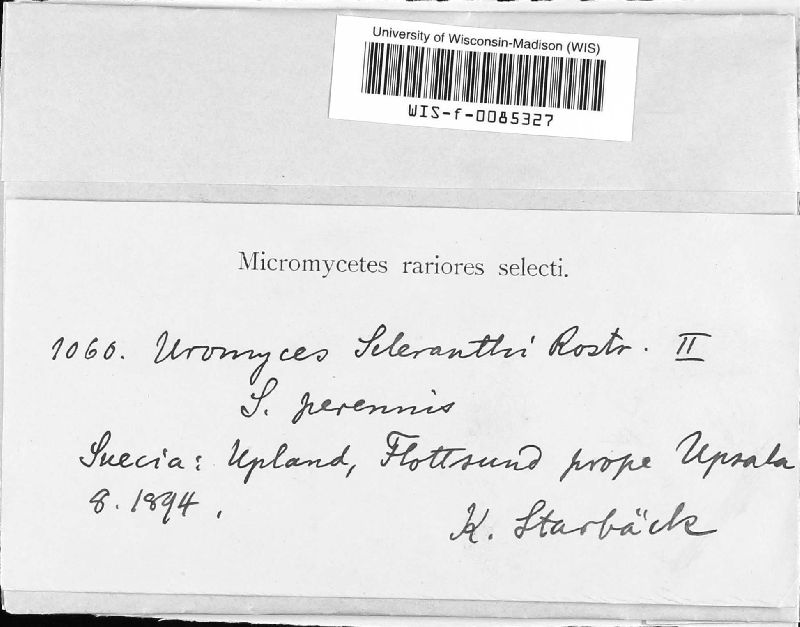 University of Wisconsin-Madison (WIS)
WIS-f-0085327
Micromycetes rariores selecti.
1060. Uromyces Scleranthi Rostr. II
S. perennis
Suecia: Upland, Flottsund prope Upsala
8. 1894.
K. Starbäck